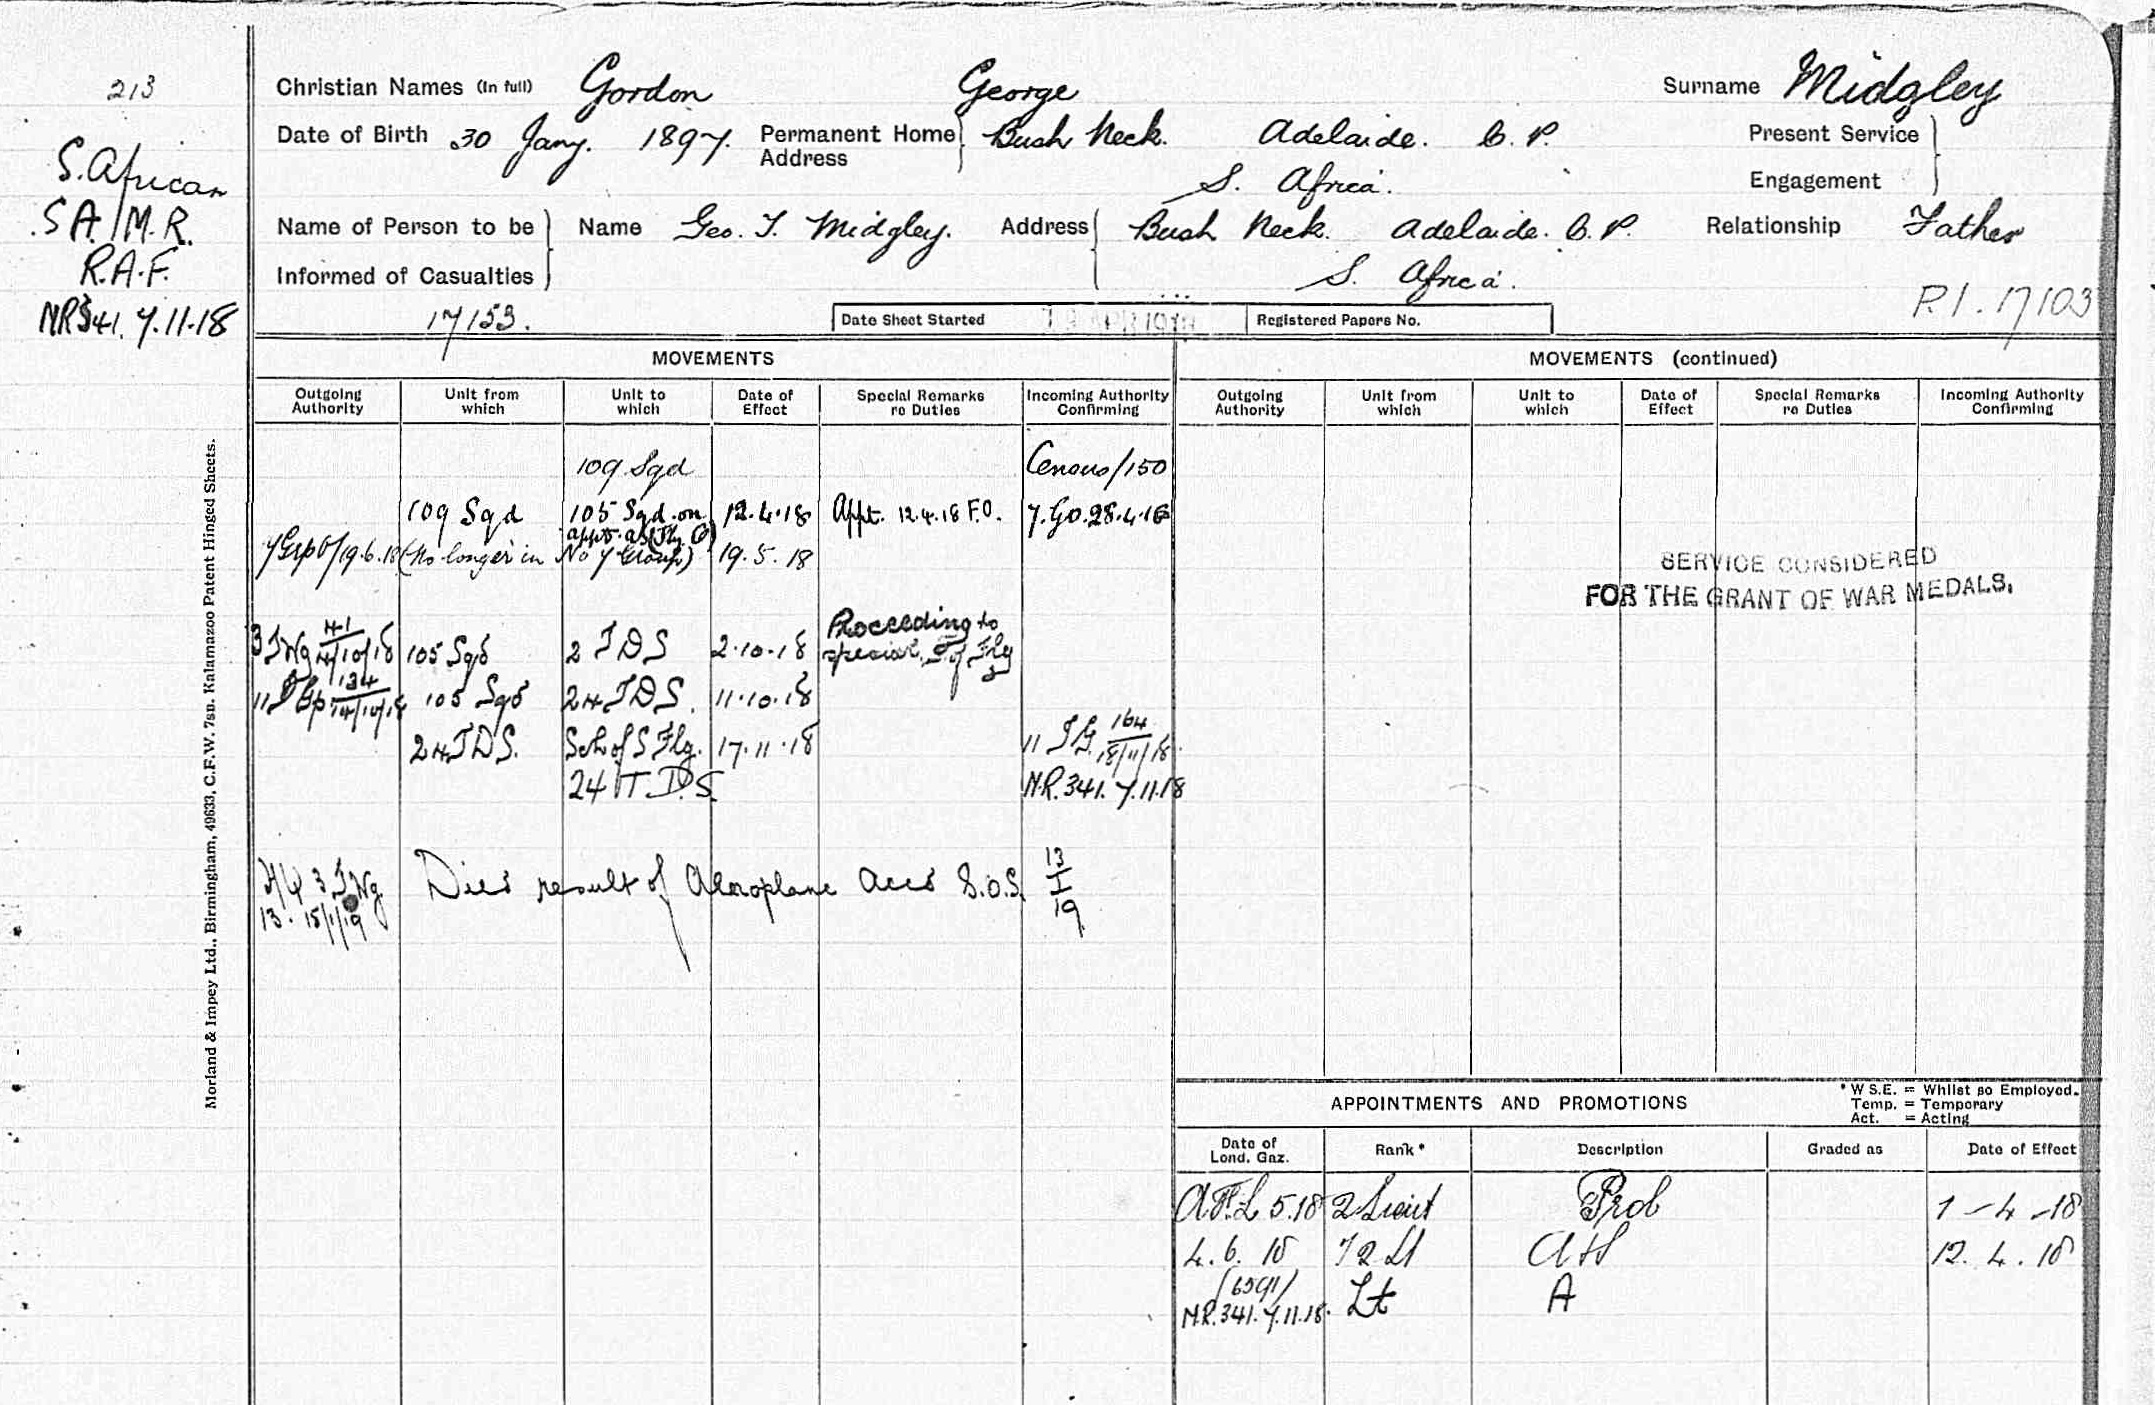 213
S. African
S A. M. R.
R.A.F.
NR341. 7.11.18
Christian Names (In full) Gordon George Surname Midgley
Date of Birth 30 Jany. 1897. Permanent Home Address Bush Neck. Adelaide. C. P. Present Service
S. Africa. Engagement
Name of Person to be Name Geo. T. Midgley. Address Bush Neck. Adelaide. C. P. Relationship Father
Informed of Casualties S. Africa.
P.I. 17103
17153. Date Sheet Started Registered Papers No.
MOVEMENTS MOVEMENTS (continued)
Outgoing Authority Unit from which Unit to which Date of Effect Special Remarks re Duties Incoming Authority Confirming Outgoing Authority Unit from which Unit to which Date of Effect Special Remarks re Duties Incoming Authority Confirming
109 Sqd Census/150
109 Sqd 105 Sqd. on 12.4.18 Appt. 12.4.18 F.O. 7.GO.28.4.18
appt. as (Fly. O)
7 Grp 19.6.18 (No longer in No 7 Group) 19.5.18
SERVICE CONSIDERED
FOR THE GRANT OF WAR MEDALS.
Proceeding to
3 T Wg 41 4/10/18 105 Sqd 2 T D S 2.10.18 special S of Flg
134 14/10/18 105 Sqd 24 T D S. 11.10.18
24 T D S. Sch of S Flg. 17.11.18 11 T G 164 18/11/18
24 T.D.S. N.R.341. 7.11.18
H/Q 3 T Wg Died result of Aeroplane Accd S.O.S. 13/1/19
13. 15/1/19
Morland & Impey Ltd., Birmingham, 49633, C.F.W. 7sn. Kalamazoo Patent Hinged Sheets.
APPOINTMENTS AND PROMOTIONS
* W S.E. = Whilst so Employed.
Temp. = Temporary
Act. = Acting
Date of Lond. Gaz. Rank* Description Graded as Date of Effect
5.18 2 Lieut Prob 1-4-18
4.6.18 T 2 Lt 12.4.18
N.R.341. 7.11.18. Lt A